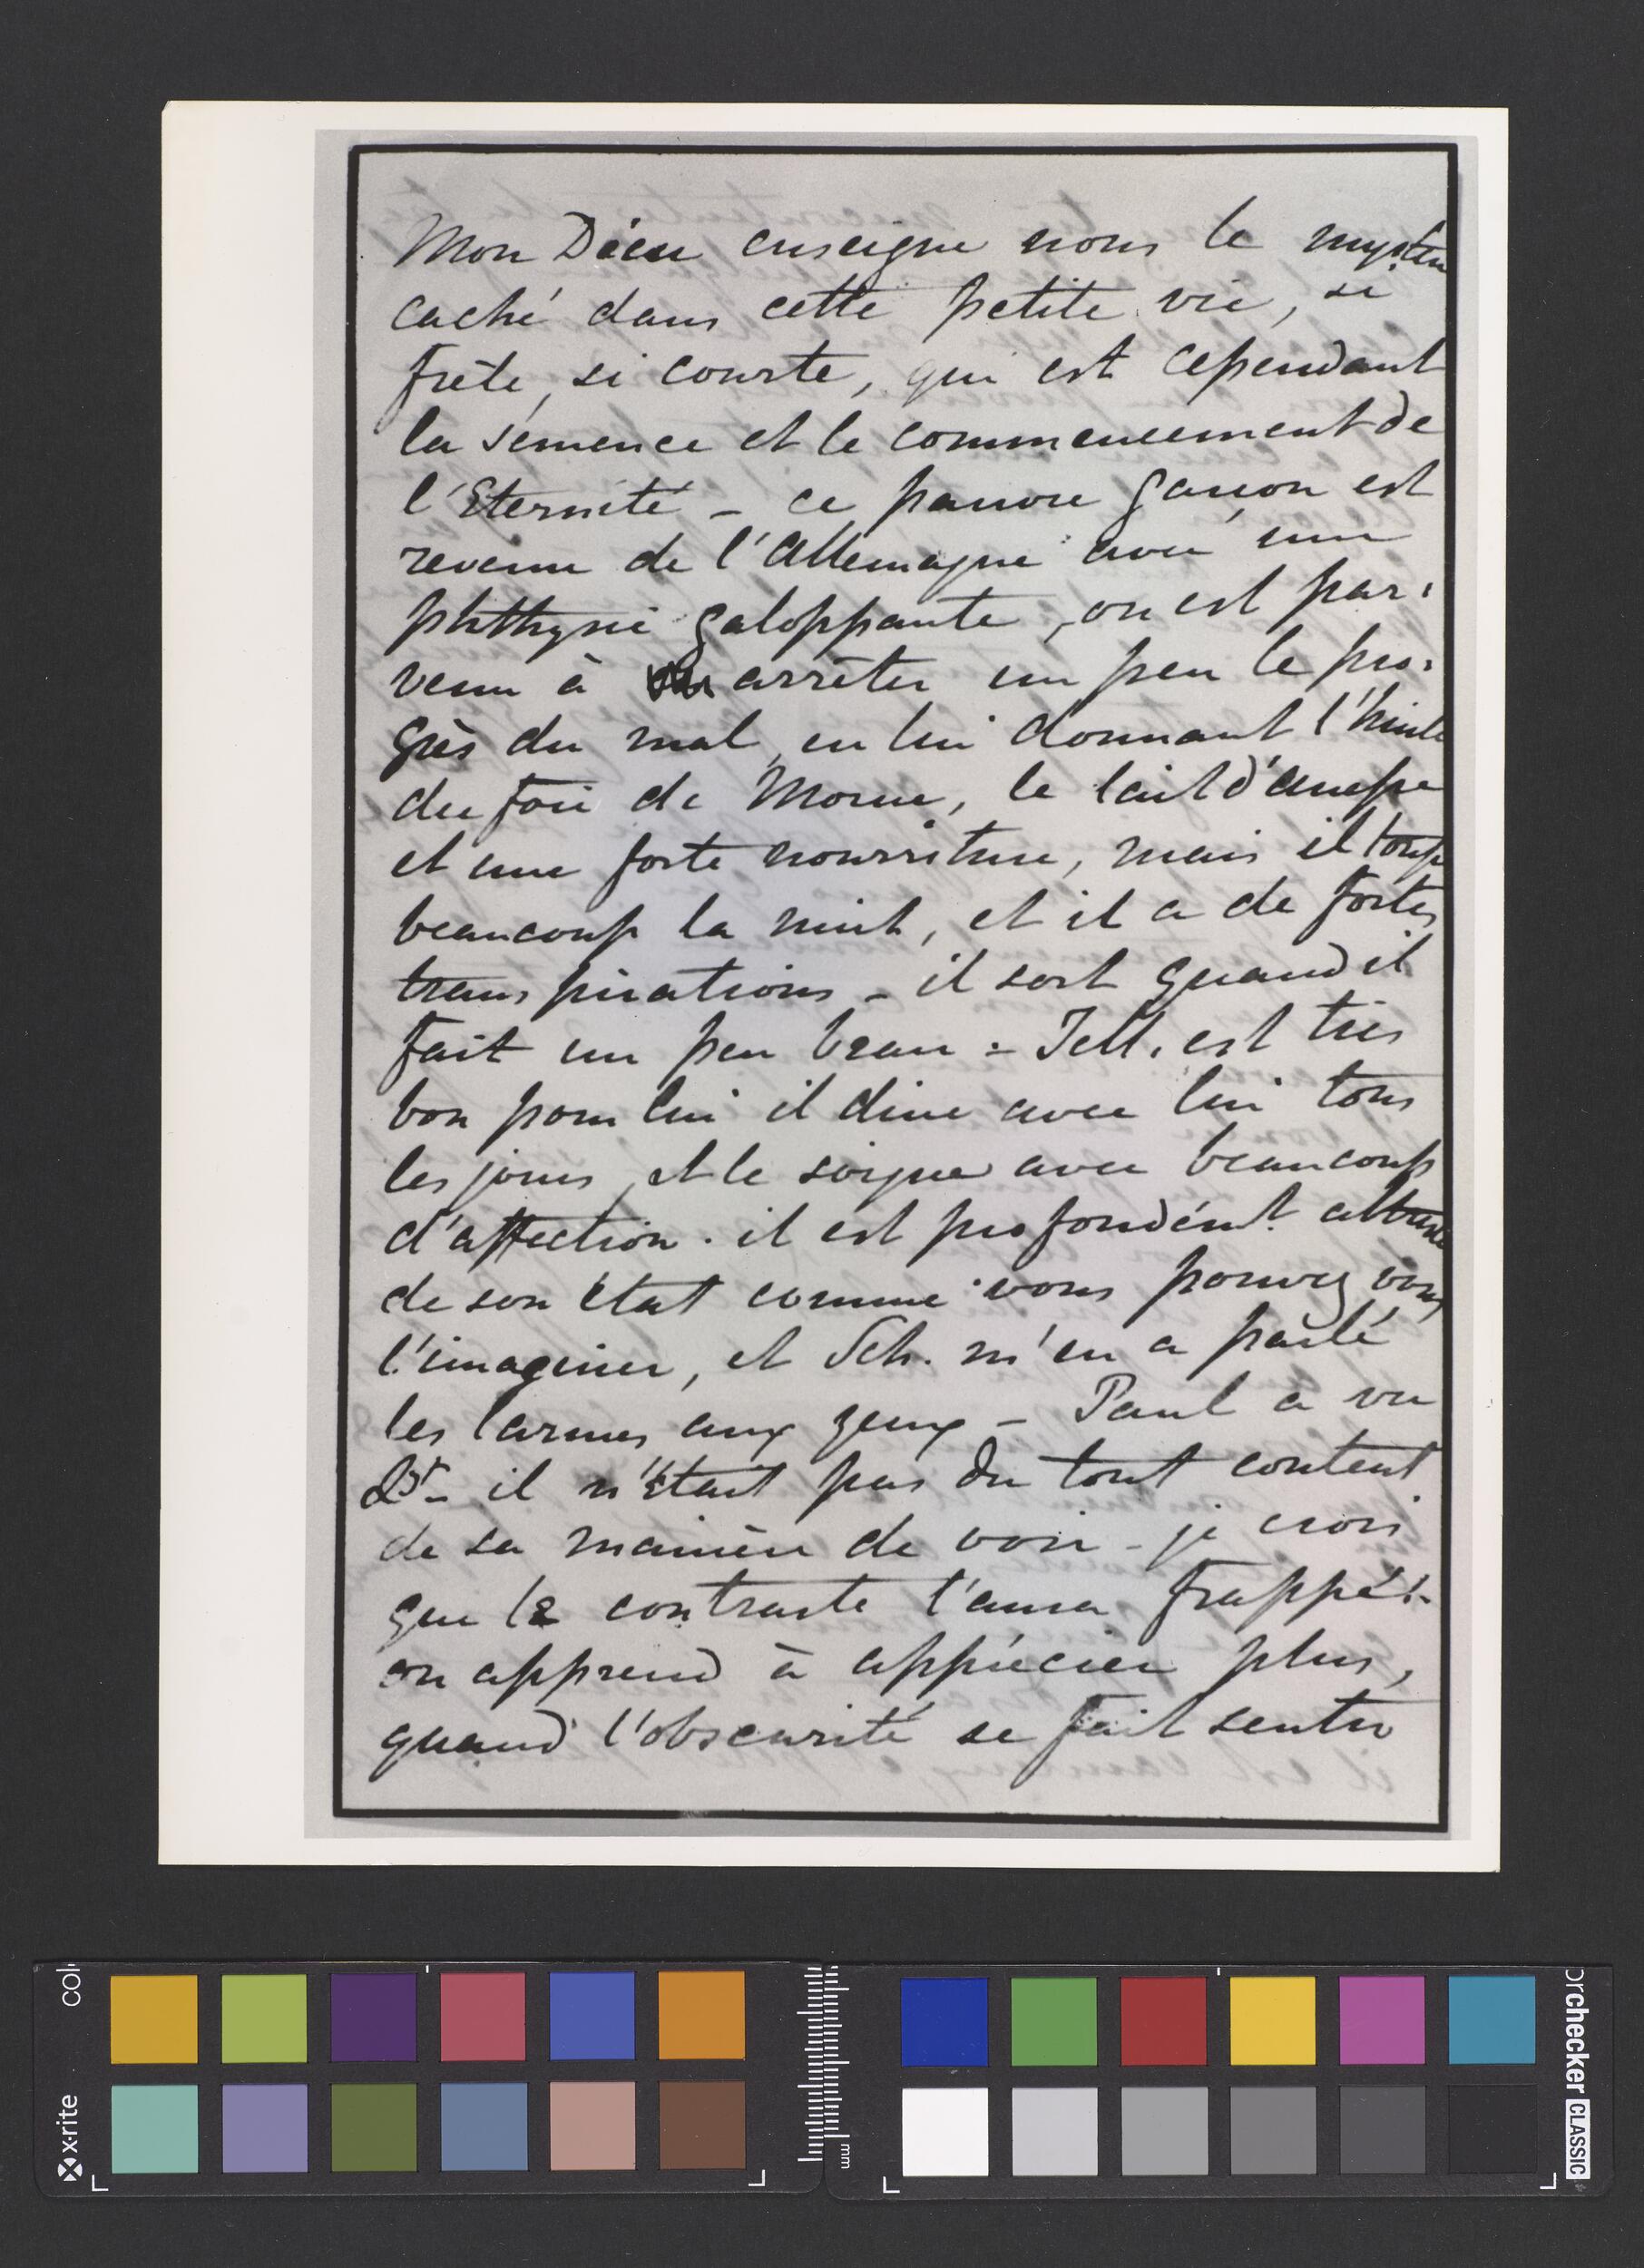 Mon Dieu enseigne nous le mystère
caché dans cette petite vie, si
frêle, si courte, qui est cependant
la semence et le commencement de
l'Eternité - ce pauvre garçon est
revenu de l'Allemagne avec une
phthysie galoppante, on est par-
venu à arrêter un peu le pro-
grès du mal, en lui donnant l'huile
du foie de Morue, le lait d'anesse
et une forte nourriture, mais il tousse
beaucoup la nuit, et il a de fortes
transpirations - il sort quand il
fait un peu beau = Jell. est très
bon pour lui il dine avec lui tous
les jours, et le soigne avec beaucoup
d'affection. il est profondémt. attristé
de son état comme vous pouvez vous
l'imaginer, et Sch. m'en a parlé
les larmes aux yeux - Paul a vu
il n'était pas du tout content
de sa manière de voir - je crois
que le contraste l'aura frappé!-
on apprend à apprécier plus,
quand l'obscurité se fait sentir
x-rite
mm
colorchecker CLASSIC